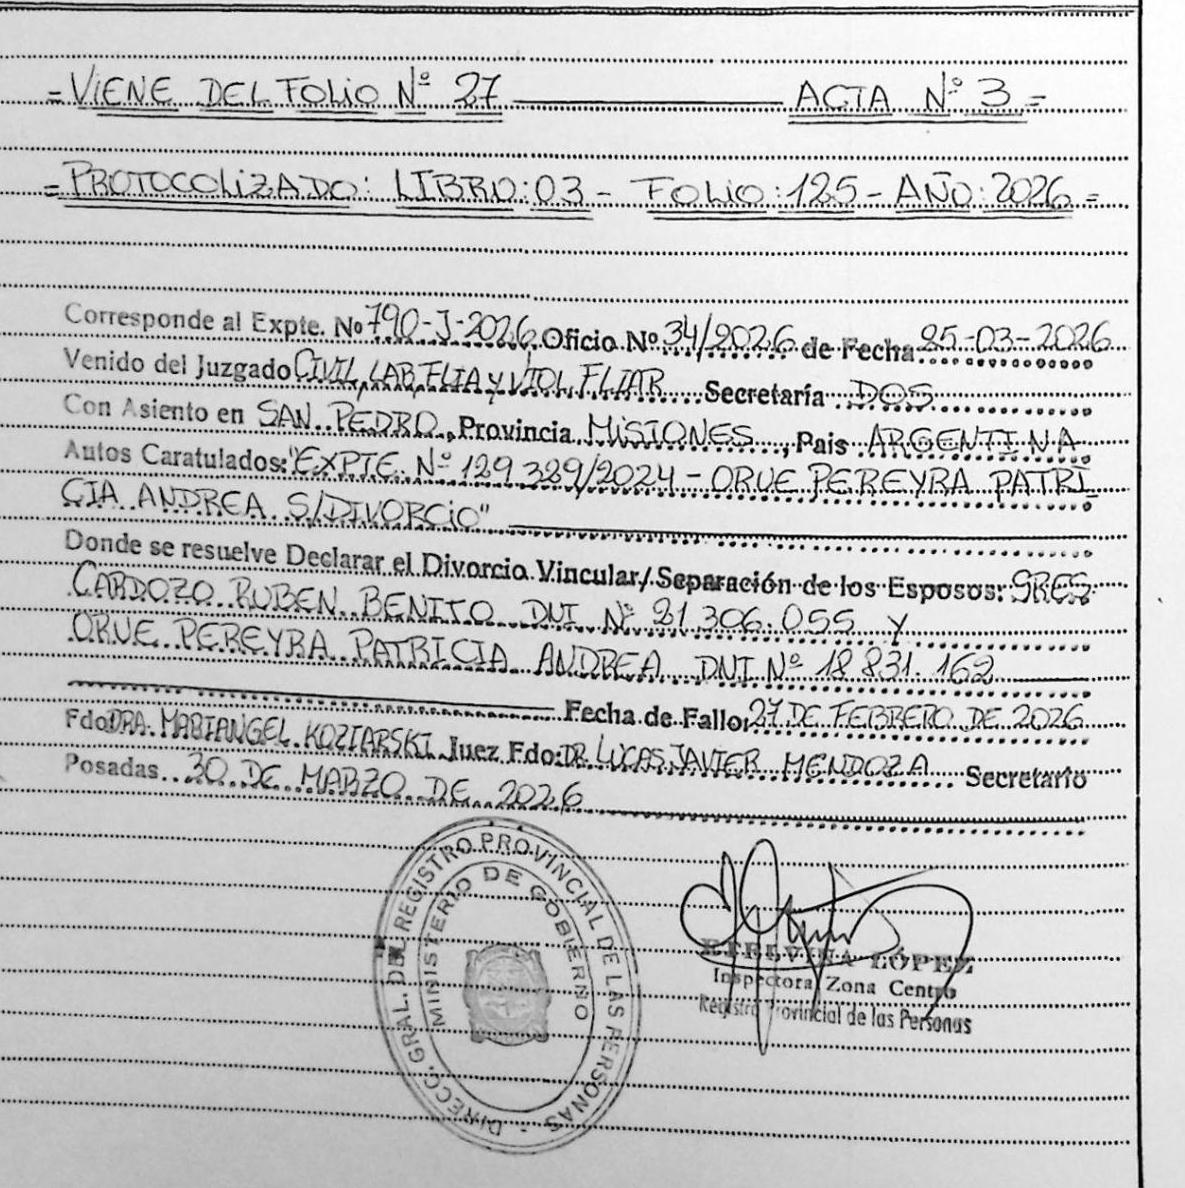 =VIENE DEL FOLIO Nº 27 ACTA Nº 3=
=PROTOCOLIZADO: LIBRO:03 - FOLIO:125 - AÑO:2026=
Corresponde al Expte. Nº 790-J-2026 Oficio Nº 34/2026 de Fecha 25-03-2026
Venido del Juzgado CIVIL, LAB, FLIA y VIOL, FLIAR Secretaría DOS
Con Asiento en SAN PEDRO, Provincia MISIONES, Pais ARGENTINA
Autos Caratulados: "EXPTE Nº 129 329/2024 - ORUE PEREYRA PATRI
CIA ANDREA S/DIVORCIO"
Donde se resuelve Declarar el Divorcio Vincular/Separación de los Esposos: SRES
CARDOZO RUBEN BENITO DNI Nº 21.306.055 Y
ORUE PEREYRA PATRICIA ANDREA DNI Nº 18 831.162
Fecha de Fallo: 27 DE FEBRERO DE 2026
Fdo DRA. MARIANGEL KOZIARSKI Juez Fdo: DR LUCAS JAVIER MENDOZA Secretario
Posadas 30 DE MARZO DE 2026
DIRECC. GRAL. DEL REGISTRO PROVINCIAL DE LAS PERSONAS -
MINISTERIO DE GOBIERNO
ETELVINA LÓPEZ
Inspectora Zona Centro
Registro Provincial de las Personas